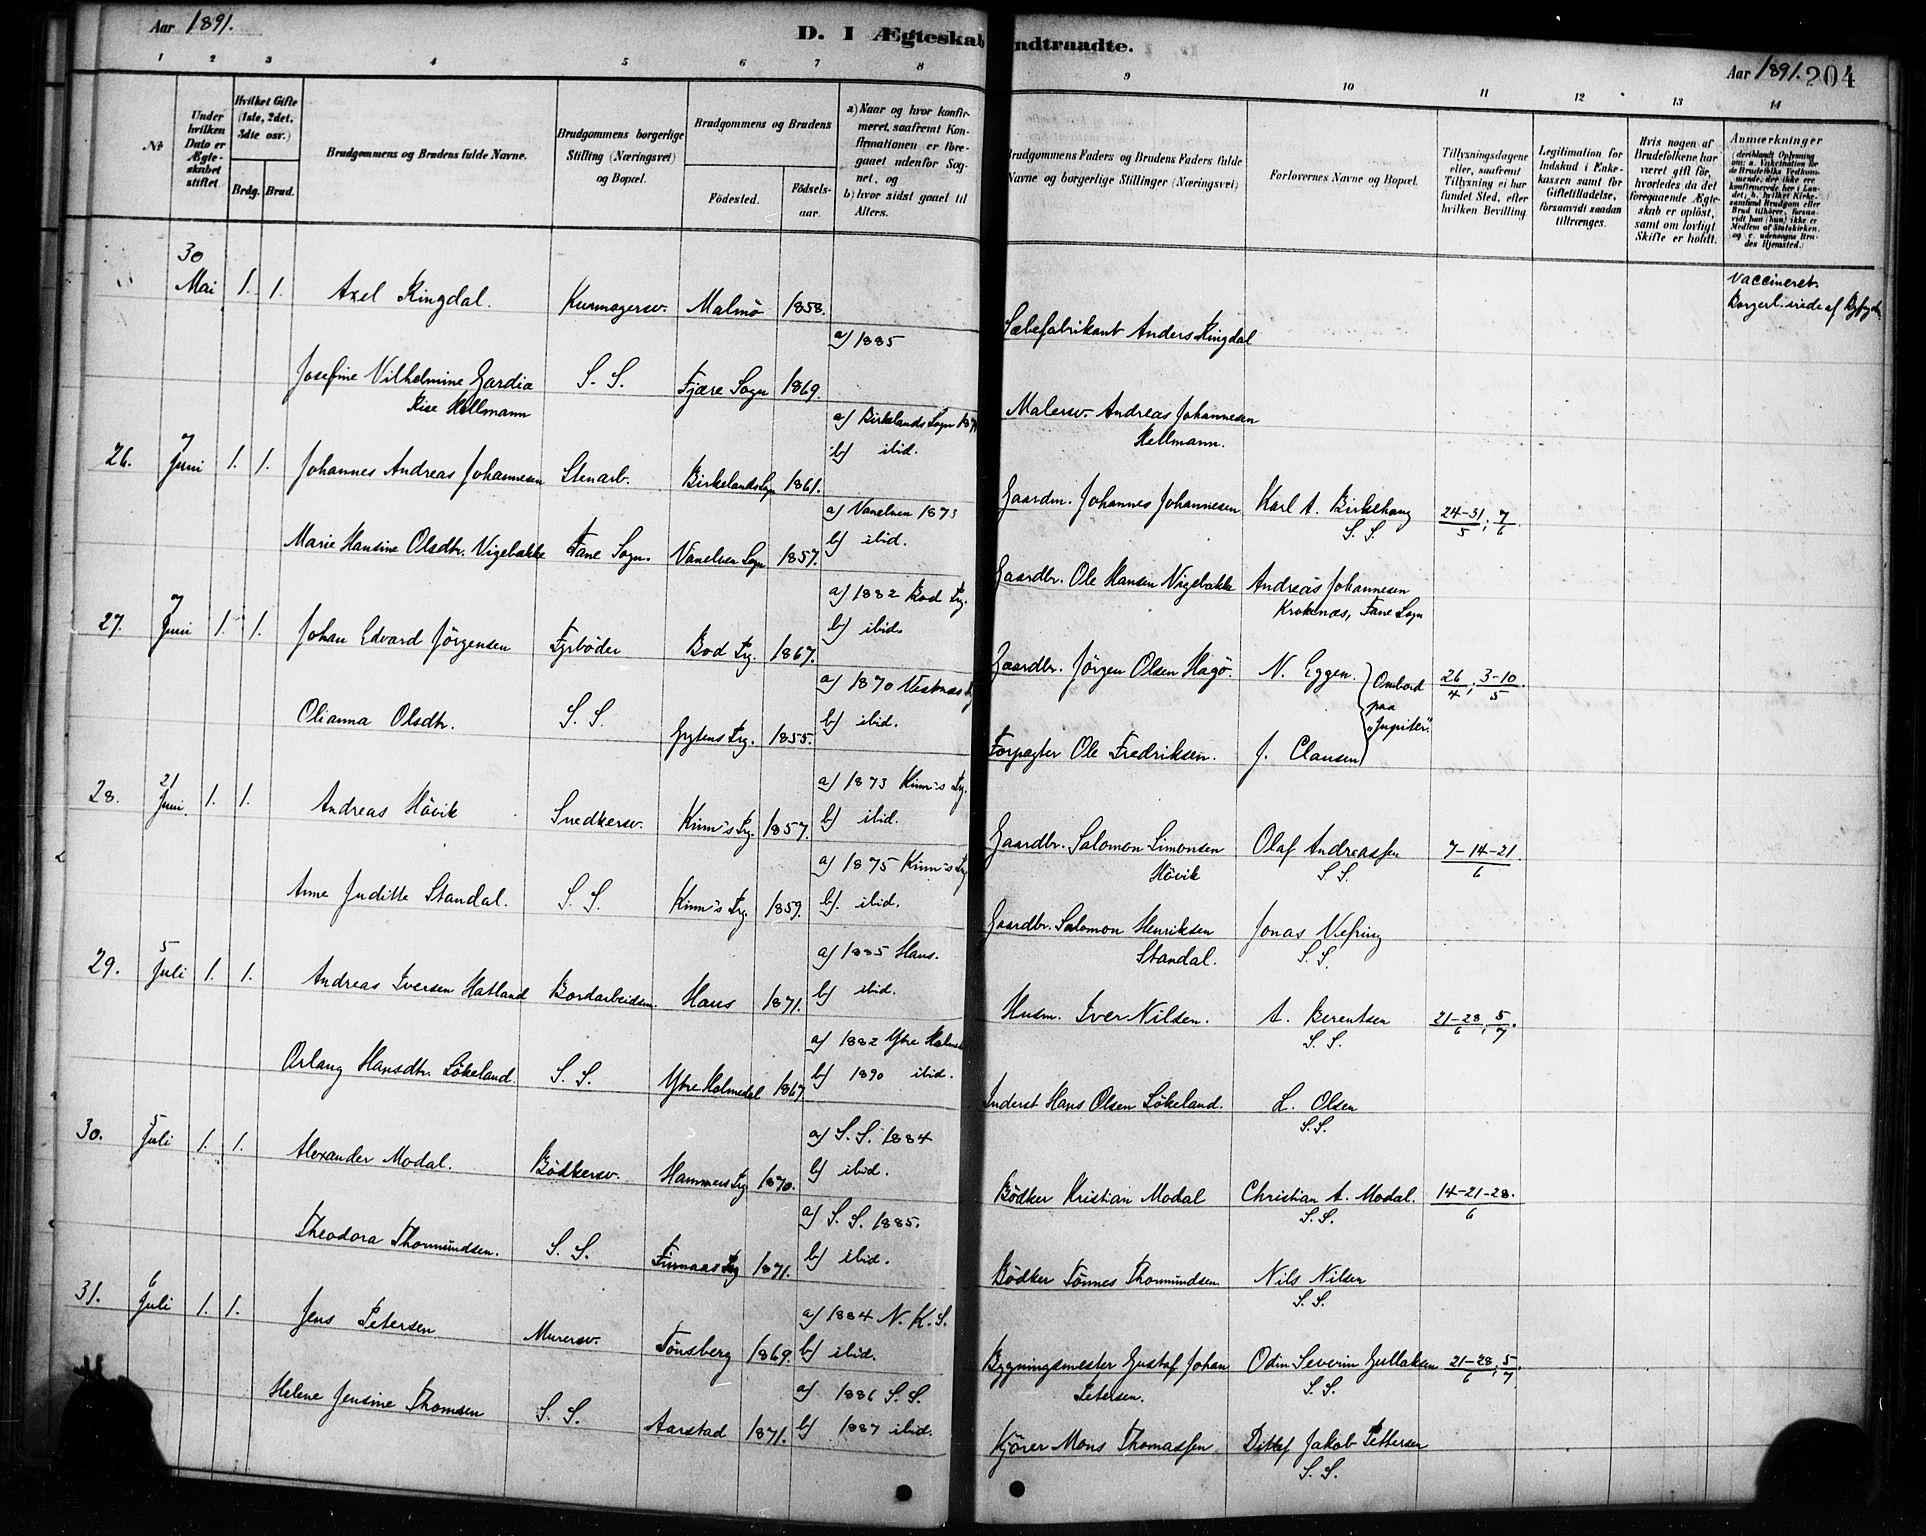 Aar 1891.
D. I Ægteskab Indtraadte.
Aar 1891. 204
1 2 3 4 5 6 7 8 9 10 11 12 13 14
№
Under hvilken Dato er Ægteskabet stiftet.
Hvilket Gifte (1ste, 2det, 3die osv.)
Brdg. Brud.
Brudgommens og Brudens fulde Navne.
Brudgommens borgerlige Stilling (Næringsvei) og Bopæl.
Brudgommens og Brudens
Fødested. Fødselsaar.
a) Naar og hvor konfirmeret, saafremt Konfirmationen er foregaaet udenfor Sognet, og
b) hvor sidst gaaet til Alters.
Brudgommens Faders og Brudens Faders fulde Navne og borgerlige Stillinger (Næringsvei)
Forlovernes Navne og Bopæl.
Tillysningsdagene eller, saafremt Tillysning ei har fundet Sted, efter hvilken Bevilling.
Legitimation for Indskud i Enkekassen samt for Giftetilladelse, forsaavidt saadan tiltrænges.
Hvis nogen af Brudefolkene har været gift før, hvorledes da det foregaaende Ægteskab er opløst, samt om lovligt Skifte er holdt.
Anmærkninger
30 Mai 1. 1. Axel Ringdal. Kurmagersv. Malmö 1858. Sæbefabrikant Anders Ringdal
Vaccineret.
Josefine Vilhelmine Gardia S. S. Fjære Sogn 1869. a) 1885 Malersv. Andreas Johannesen
Rise Hellmann Hellmann.
26. 7 Juni 1. 1. Johannes Andreas Johannesen Stenarb. Birkelands Sogn 1861. a) Birkelands Sogn
b) ibid. Gaardm. Johannes Johannesen Karl A. Birkehaug S. S. 24-31/5; 7/6
Marie Hansine Olsdtr. Vigebakke Fane Sogn. Vanelven Sogn 1857. a) Vanelven 1873
b) ibid. Gaardbr. Ole Hansen Vigebakke Andreas Johannesen
Kroknæs, Fane Sogn
27. 7 Juni 1. 1. Johan Edvard Jörgensen Fyrböder Bod Prg. 1867. a) 1882 Bod Prg.
b) ibid. Gaardbr. Jörgen Olsen Hagö. N. Eggen. 26/4; 3-10/5.
Ombord paa "Jupiter"
Olianna Olsdtr. S. S. Grytens Prg. 1855. a) 1870 Vestnæs
b) ibid. Forpagter Ole Fredriksen. J. Clausen
28. 21 Juni. 1. 1. Andreas Hövik Snedkersv. Kinn's Prg. 1857. a) 1873 Kinn's Prg.
b) ibid. Gaardbr. Salomon Simonsen Hövik Olaf Andreassen S. S. 7-14-21/6
Anne Juditte Standal. S. S. Kinn's Prg. 1859. a) 1875 Kinn's Prg
b). ibid. Gaardbr. Salomon Henriksen Standal. Jonas Vefring S. S.
29. 5 Juli 1. 1. Andreas Iversen Hatland Bordarbeidsm. Haus 1871. a) 1885 Haus.
b) ibid. Husm. Iver Nilsen. A. Berentsen S. S. 21-28/6; 5/7.
Orlaug Hansdtr. Lökeland. S. S. Ytre Holmedal 1867. a) 1882 Ytre Holmed
b) 1890 ibid. Inderst Hans Olsen Lökeland. L. Olsen S. S.
30. 5 Juli 1. 1. Alexander Modal. Bödkersv. Hammers Prg 1870. a) S. S. 1884
b) ibid. Bödker Kristian Modal Christian A. Modal. S. S. 14-21-28./6
Theodora Thormundsen. S. S. Finnaas Prg 1871. a) S. S. 1885.
b) ibid. Bödker Tönnes Thormundsen Nils Nilsen S. S.
31. 6 Juli 1. 1. Jens Petersen Murersv. Tönsberg 1869. a) 1884 N. K. S.
b) ibid. Bygningsmester Gustaf Johan Petersen. Odin Severin Gullaksen S. S. 21-28/6; 5/7.
Helene Jensine Thomsen S. S. Aarstad 1871. a) 1886 S. S.
b) 1887 ibid. Kjörer Mons Thomassen Ditlef Jakob Pettersen S. S.